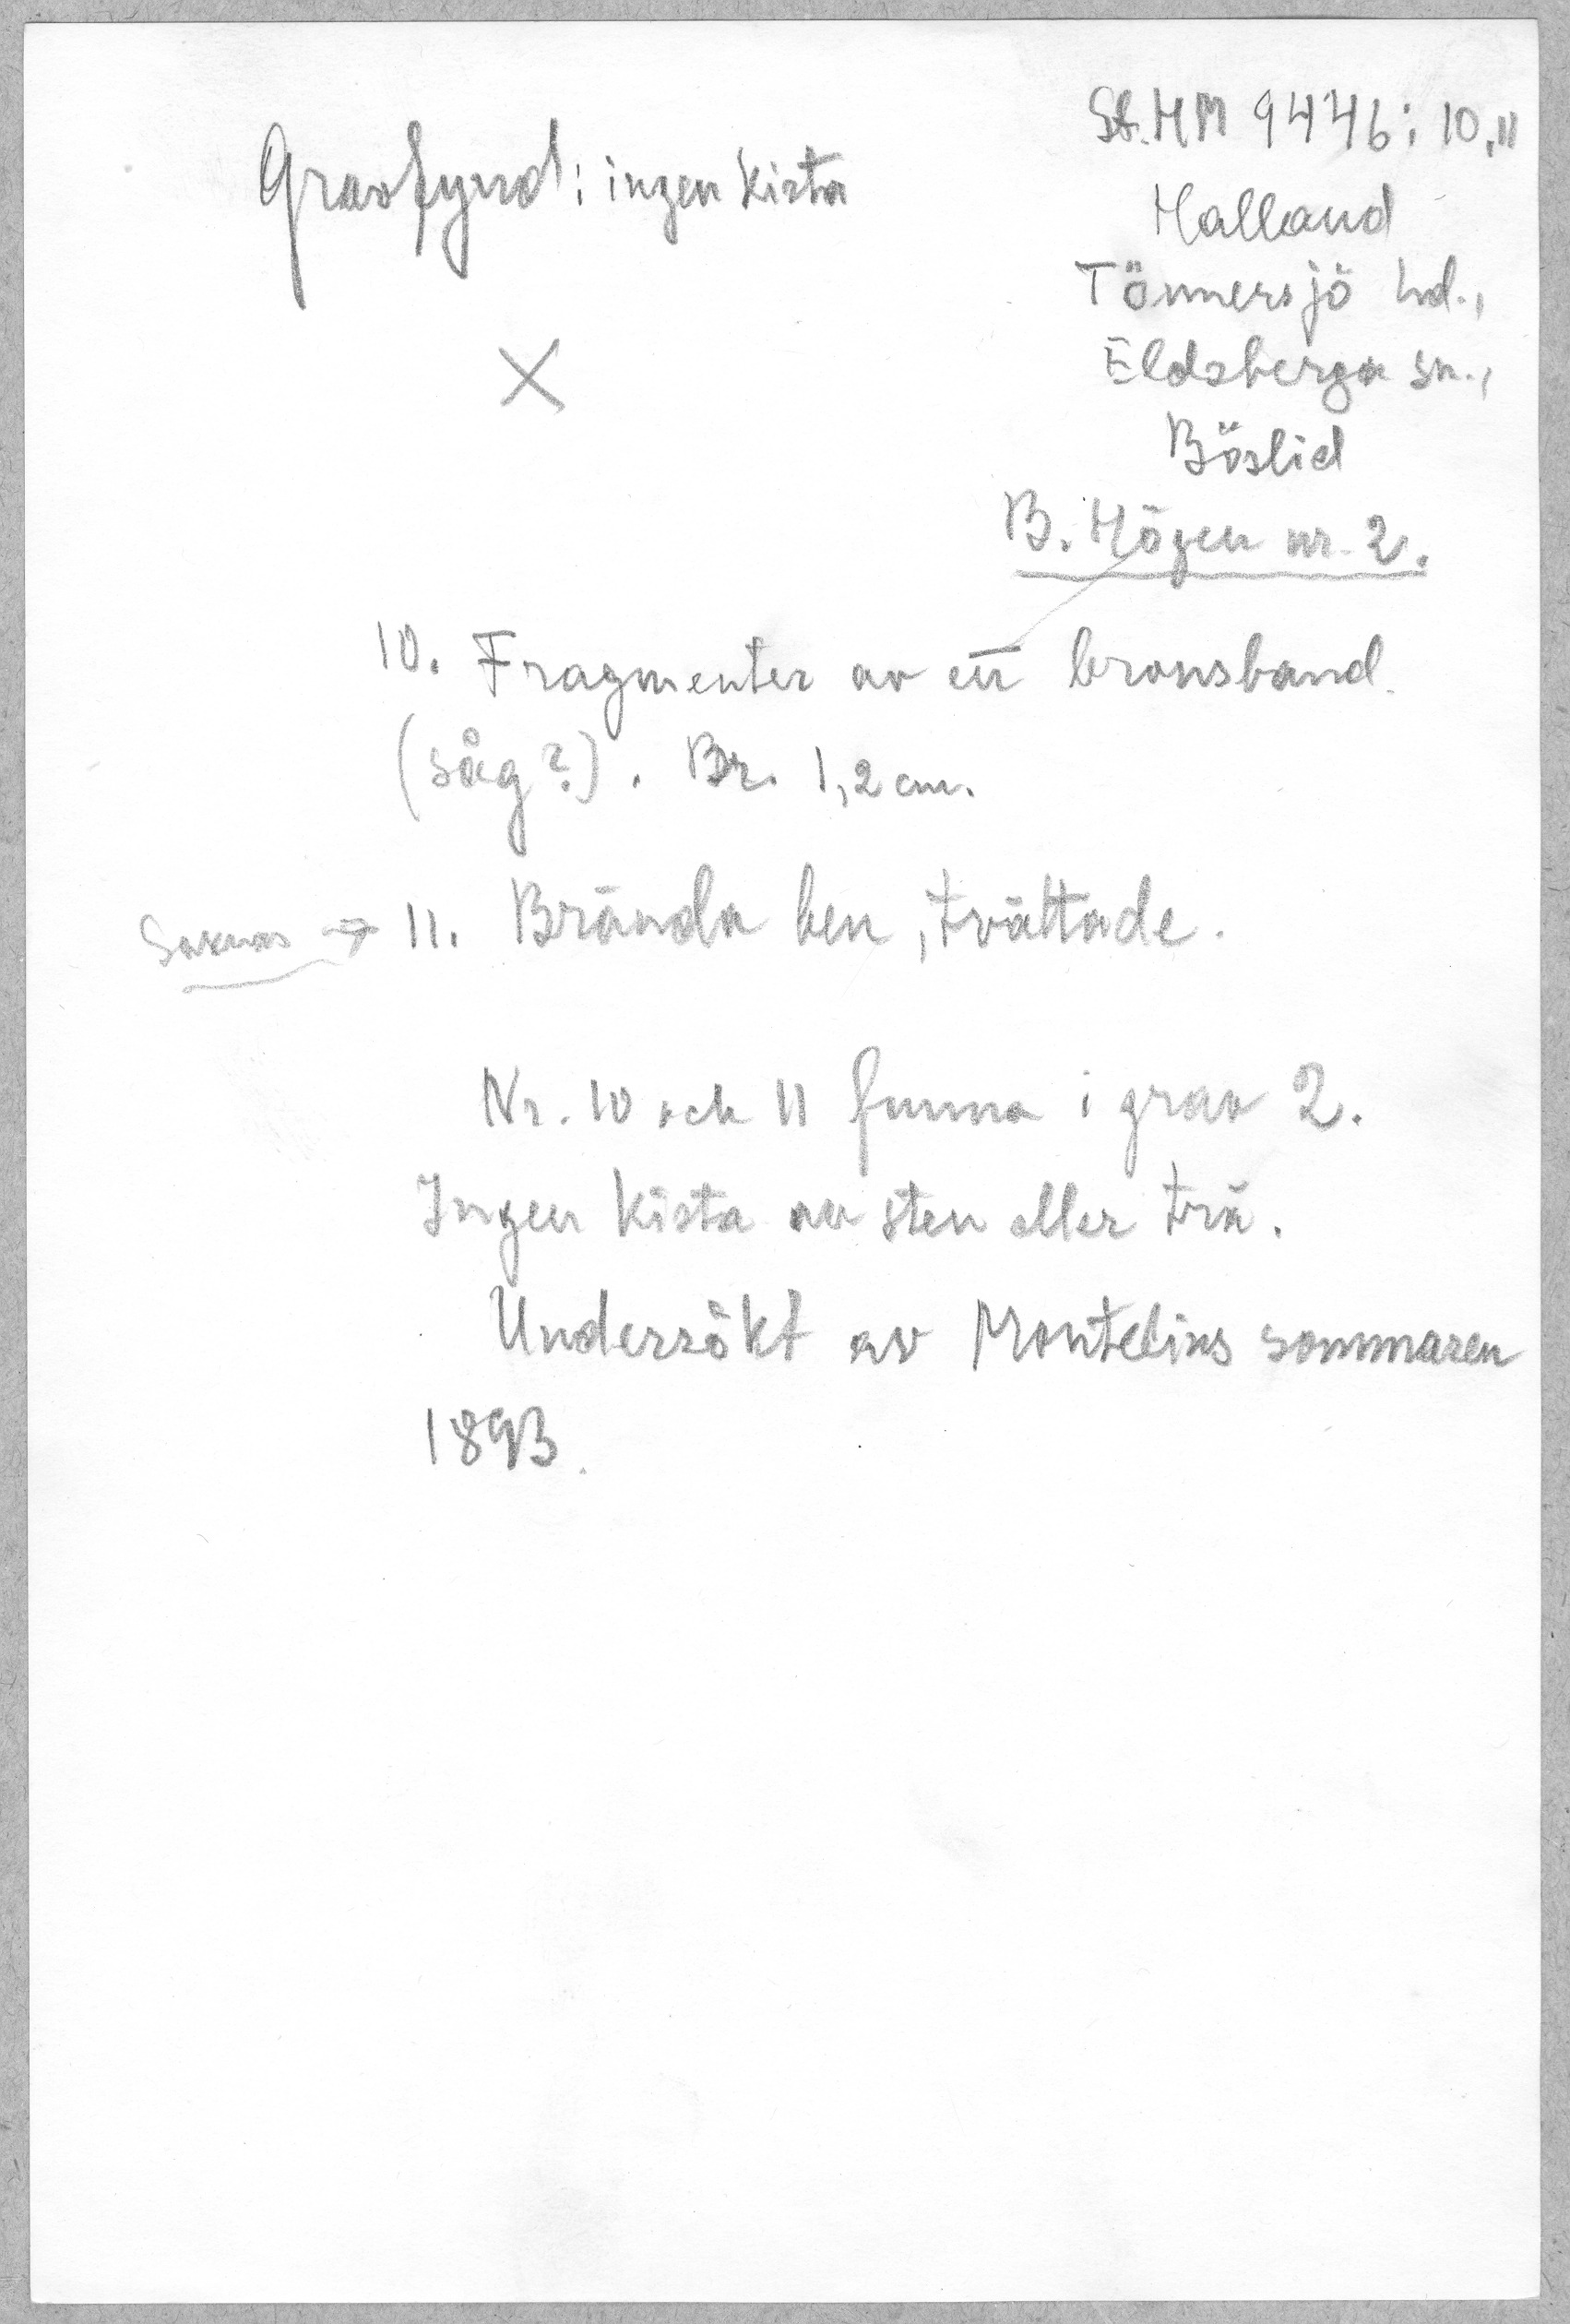 St. HM 9446: 10, 11
Gravfynd: ingen kista
Halland
Tönnersjö hd.,
Eldsberga sn.,
X
Böslid
B. Högen nr. 2.
10. Fragmenter av ett bronsband
(såg?). Br. 1,2 cm.
Saknas → 11. Brända ben, tvättade.
Nr. 10 och 11 funna i grav 2.
Ingen kista av sten eller trä.
Undersökt av Montelius sommaren
1893.